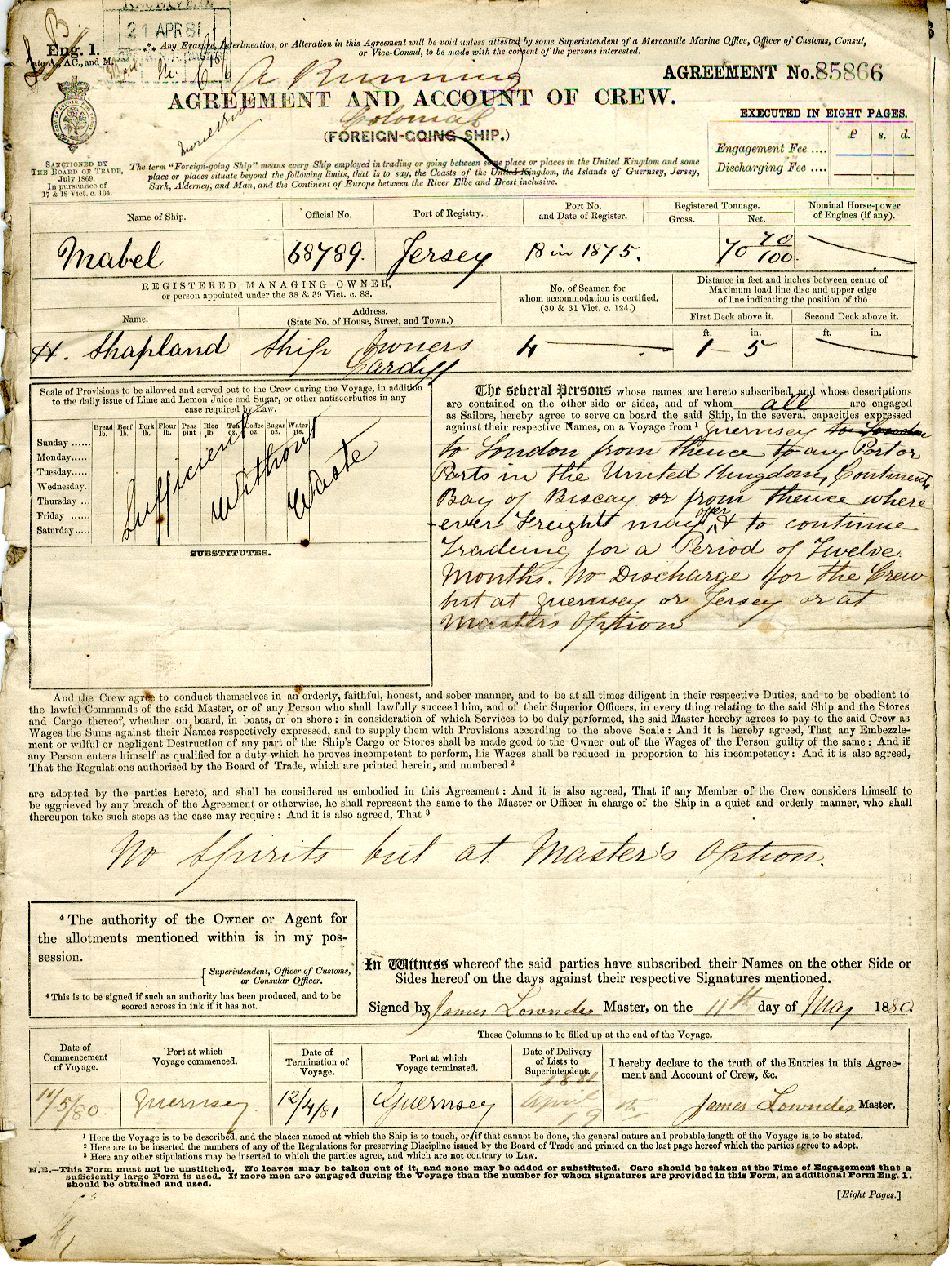 21 APR 81
Eng. 1.
Any Erasure, Interlineation, or Alteration in this Agreement will be void unless attested by some Superintendent of a Mercantile Marine Office, Officer of Customs, Consul,
or Vice-Consul, to be made with the consent of the persons interested.
A Running
AGREEMENT No. 85866
AGREEMENT AND ACCOUNT OF CREW.
Colonial
(FOREIGN-GOING SHIP.)
EXECUTED IN EIGHT PAGES.
£ s. d.
Engagement Fee ....
Discharging Fee ....
SANCTIONED BY
THE BOARD OF TRADE,
July 1869.
In pursuance of
17 & 18 Vict. c. 104.
The term "Foreign-going Ship" means every Ship employed in trading or going between some place or places in the United Kingdom and some
place or places situate beyond the following limits, that is to say, the Coasts of the United Kingdom, the Islands of Guernsey, Jersey,
Sark, Alderney, and Man, and the Continent of Europe between the River Elbe and Brest inclusive.
Name of Ship. Official No. Port of Registry. Port No. and Date of Register. Registered Tonnage. Gross. Net. Nominal Horse-power of Engines (if any).
Mabel 68789. Jersey 18 in 1875. 70 70/100
REGISTERED MANAGING OWNER,
or person appointed under the 38 & 39 Vict. c. 88.
No. of Seamen for whom accommodation is certified. (30 & 31 Vict. c. 124.)
Distance in feet and inches between centre of
Maximum load line disc and upper edge
of line indicating the position of the
Name. Address. (State No. of House, Street, and Town.) First Deck above it. Second Deck above it.
ft. in. ft. in.
H. Shapland Ship Owners 4 1 5
Cardiff
Scale of Provisions to be allowed and served out to the Crew during the Voyage, in addition
to the daily issue of Lime and Lemon Juice and Sugar, or other antiscorbutics in any
case required by Law.
Bread lb. Beef lb. Pork lb. Flour lb. Peas pint Rice lb Tea oz. Coffee oz. Sugar oz. Water qts.
Sunday ......
Monday .....
Tuesday .....
Wednesday.
Thursday ...
Friday ......
Saturday ....
Sufficient Without Waste
SUBSTITUTES.
The several Persons whose names are hereto subscribed, and whose descriptions
are contained on the other side or sides, and of whom all are engaged
as Sailors, hereby agree to serve on board the said Ship, in the several capacities expressed
against their respective Names, on a Voyage from ¹ Guernsey to London
to London from thence to any Port or
Ports in the United Kingdom, Continent,
Bay of Biscay or from thence where
ever Freight may offer, & to continue
Tradeing for a Period of Twelve
Months. No Discharge for the Crew
but at Guernsey or Jersey or at
Masters Option
And the Crew agree to conduct themselves in an orderly, faithful, honest, and sober manner, and to be at all times diligent in their respective Duties, and to be obedient to
the lawful Commands of the said Master, or of any Person who shall lawfully succeed him, and of their Superior Officers, in every thing relating to the said Ship and the Stores
and Cargo thereof, whether on board, in boats, or on shore : in consideration of which Services to be duly performed, the said Master hereby agrees to pay to the said Crew as
Wages the Sums against their Names respectively expressed, and to supply them with Provisions according to the above Scale : And it is hereby agreed, That any Embezzle-
ment or wilful or negligent Destruction of any part of the Ship's Cargo or Stores shall be made good to the Owner out of the Wages of the Person guilty of the same : And if
any Person enters himself as qualified for a duty which he proves incompetent to perform, his Wages shall be reduced in proportion to his incompetency : And it is also agreed,
That the Regulations authorised by the Board of Trade, which are printed herein, and numbered ²
are adopted by the parties hereto, and shall be considered as embodied in this Agreement : And it is also agreed, That if any Member of the Crew considers himself to
be aggrieved by any breach of the Agreement or otherwise, he shall represent the same to the Master or Officer in charge of the Ship in a quiet and orderly manner, who shall
thereupon take such steps as the case may require : And it is also agreed, That ³
No Spirits but at Master's Option.
⁴ The authority of the Owner or Agent for
the allotments mentioned within is in my pos-
session.
Superintendent, Officer of Customs,
or Consular Officer.
⁴ This is to be signed if such an authority has been produced, and to be
scored across in ink if it has not.
In Witness whereof the said parties have subscribed their Names on the other Side or
Sides hereof on the days against their respective Signatures mentioned.
Signed by James Lowndes Master, on the 11th day of May 1880.
These Columns to be filled up at the end of the Voyage.
Date of Commencement of Voyage. Port at which Voyage commenced. Date of Termination of Voyage. Port at which Voyage terminated. Date of Delivery of Lists to Superintendent. I hereby declare to the truth of the Entries in this Agree-
ment and Account of Crew, &c.
11/5/80 Guernsey. 12/4/81 Guernsey 1881 April James Lowndes Master.
¹ Here the Voyage is to be described, and the places named at which the Ship is to touch, or if that cannot be done, the general nature and probable length of the Voyage is to be stated.
² Here are to be inserted the numbers of any of the Regulations for preserving Discipline issued by the Board of Trade and printed on the last page hereof which the parties agree to adopt.
³ Here any other stipulations may be inserted to which the parties agree, and which are not contrary to Law.
N.B.—This Form must not be unstitched. No leaves may be taken out of it, and none may be added or substituted. Care should be taken at the Time of Engagement that a
sufficiently large Form is used. If more men are engaged during the Voyage than the number for whom signatures are provided in this Form, an additional Form Eng. 1.
should be obtained and used.
[Eight Pages.]